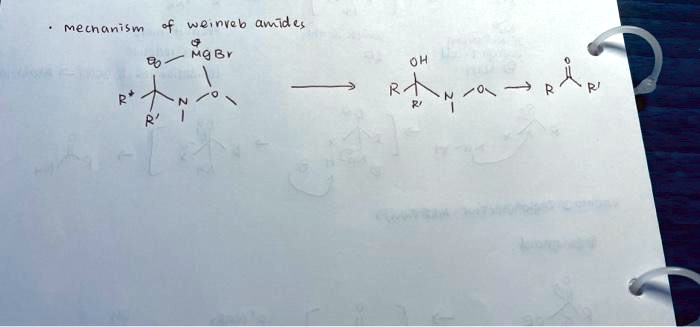 · mechanism of weinreb amides
⊕
⊖O MgBr
R* N O
R'
OH
R N O
R'
O
R R'